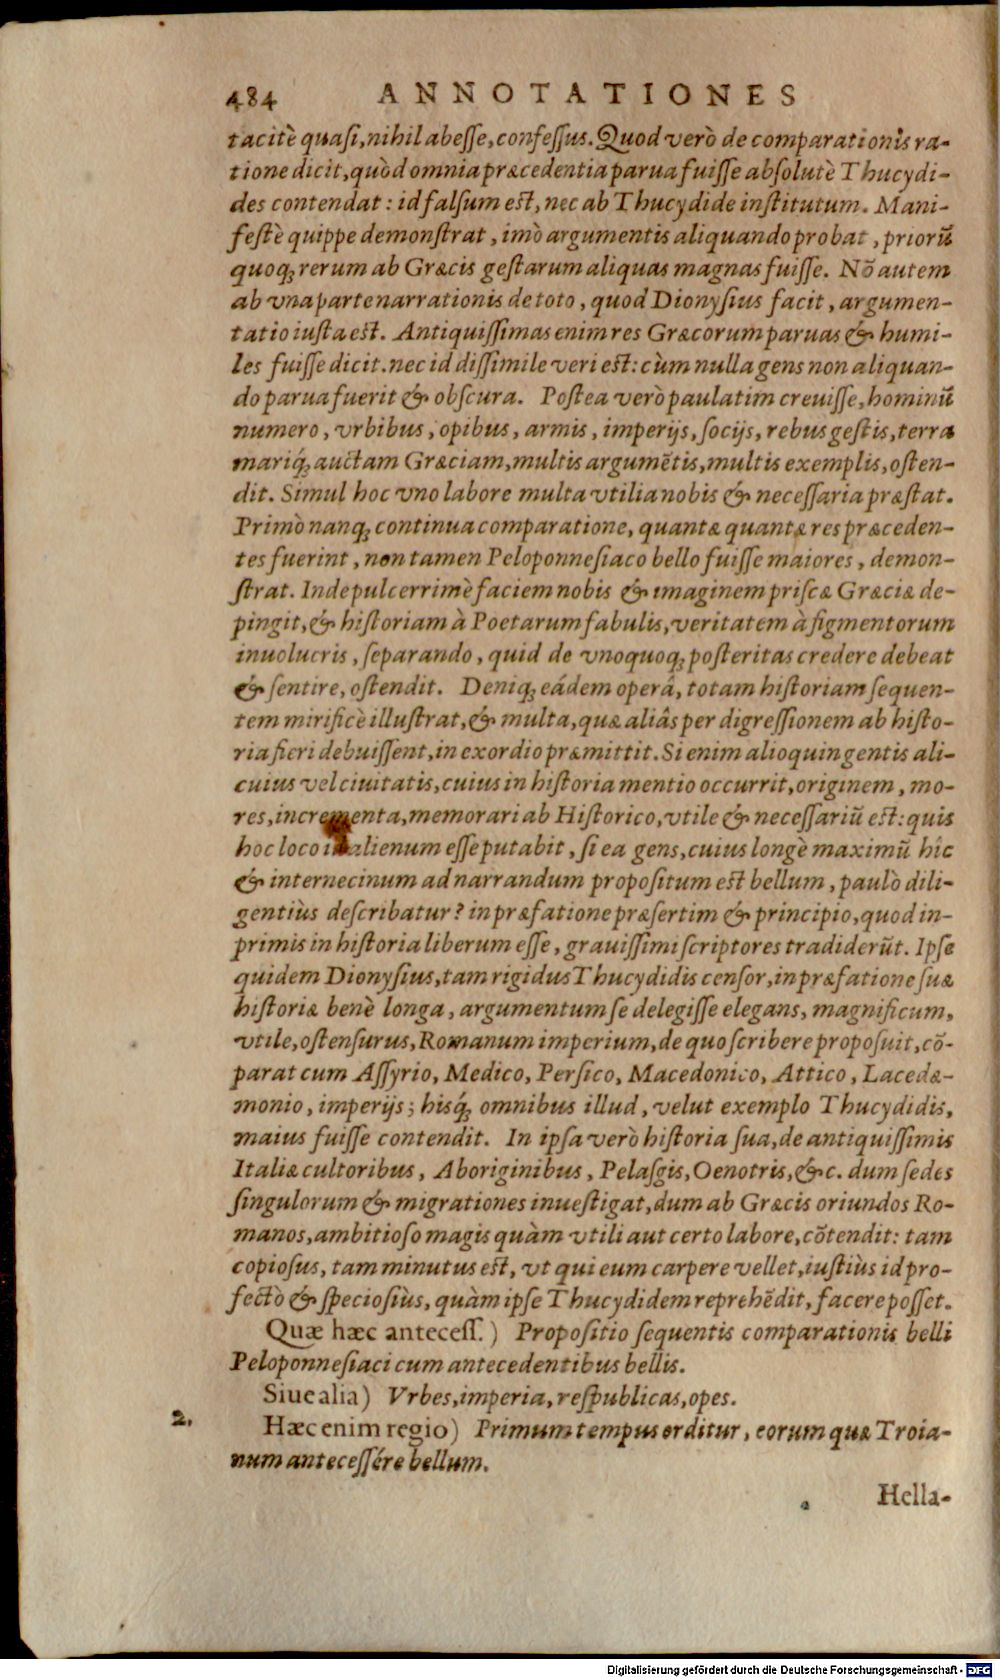 484 ANNOTATIONES
tacitè quasi, nihil abesse, confessus. Quod verò de comparationis ra-
tione dicit, quòd omnia præcedentia parua fuisse absolutè Thucydi-
des contendat: id falsum est, nec ab Thucydide institutum. Mani-
festè quippe demonstrat, imò argumentis aliquando probat, priorũ
quoq; rerum ab Græcis gestarum aliquas magnas fuisse. Nõ autem
ab vna parte narrationis de toto, quod Dionysius facit, argumen-
tatio iusta est. Antiquissimas enim res Græcorum paruas & humi-
les fuisse dicit. nec id dissimile veri est: cùm nulla gens non aliquan-
do parua fuerit & obscura. Postea verò paulatim creuisse, hominũ
numero, vrbibus, opibus, armis, imperijs, socijs, rebus gestis, terra
mariq́; auctam Græciam, multis argumẽtis, multis exemplis, osten-
dit. Simul hoc vno labore multa vtilia nobis & necessaria præstat.
Primò nanq; continua comparatione, quantæ quantæ res præceden-
tes fuerint, non tamen Peloponnesiaco bello fuisse maiores, demon-
strat. Inde pulcerrimè faciem nobis & imaginem priscæ Græciæ de-
pingit, & historiam à Poetarum fabulis, veritatem à figmentorum
inuolucris, separando, quid de vnoquoq; posteritas credere debeat
& sentire, ostendit. Deniq; eádem operâ, totam historiam sequen-
tem mirificè illustrat, & multa, quæ aliâs per digressionem ab histo-
ria fieri debuissent, in exordio præmittit. Si enim alioquin gentis ali-
cuius vel ciuitatis, cuius in historia mentio occurrit, originem, mo-
res, incrementa, memorari ab Historico, vtile & necessariũ est: quis
hoc loco id alienum esse putabit, si ea gens, cuius longè maximũ hic
& internecinum ad narrandum propositum est bellum, paulò dili-
gentiùs describatur? in præfatione præsertim & principio, quod in-
primis in historia liberum esse, grauissimi scriptores tradiderũt. Ipse
quidem Dionysius, tam rigidus Thucydidis censor, in præfatione suæ
historiæ benè longa, argumentum se delegisse elegans, magnificum,
vtile, ostensurus, Romanum imperium, de quo scribere proposuit, cõ-
parat cum Assyrio, Medico, Persico, Macedonico, Attico, Lacedæ-
monio, imperijs; hisq́; omnibus illud, velut exemplo Thucydidis,
maius fuisse contendit. In ipsa verò historia sua, de antiquissimis
Italiæ cultoribus, Aboriginibus, Pelasgis, Oenotris, &c. dum sedes
singulorum & migrationes inuestigat, dum ab Græcis oriundos Ro-
manos, ambitioso magis quàm vtili aut certo labore, cõtendit: tam
copiosus, tam minutus est, vt qui eum carpere vellet, iustiùs id pro-
fectò & speciosiùs, quàm ipse Thucydidem reprehẽdit, facere posset.
Quæ hæc antecess.) Propositio sequentis comparationis belli
Peloponnesiaci cum antecedentibus bellis.
Siue alia) Vrbes, imperia, respublicas, opes.
2. Hæc enim regio) Primum tempus orditur, eorum quæ Troia-
num antecessére bellum.
Hella-
Digitalisierung gefördert durch die Deutsche Forschungsgemeinschaft - DFG